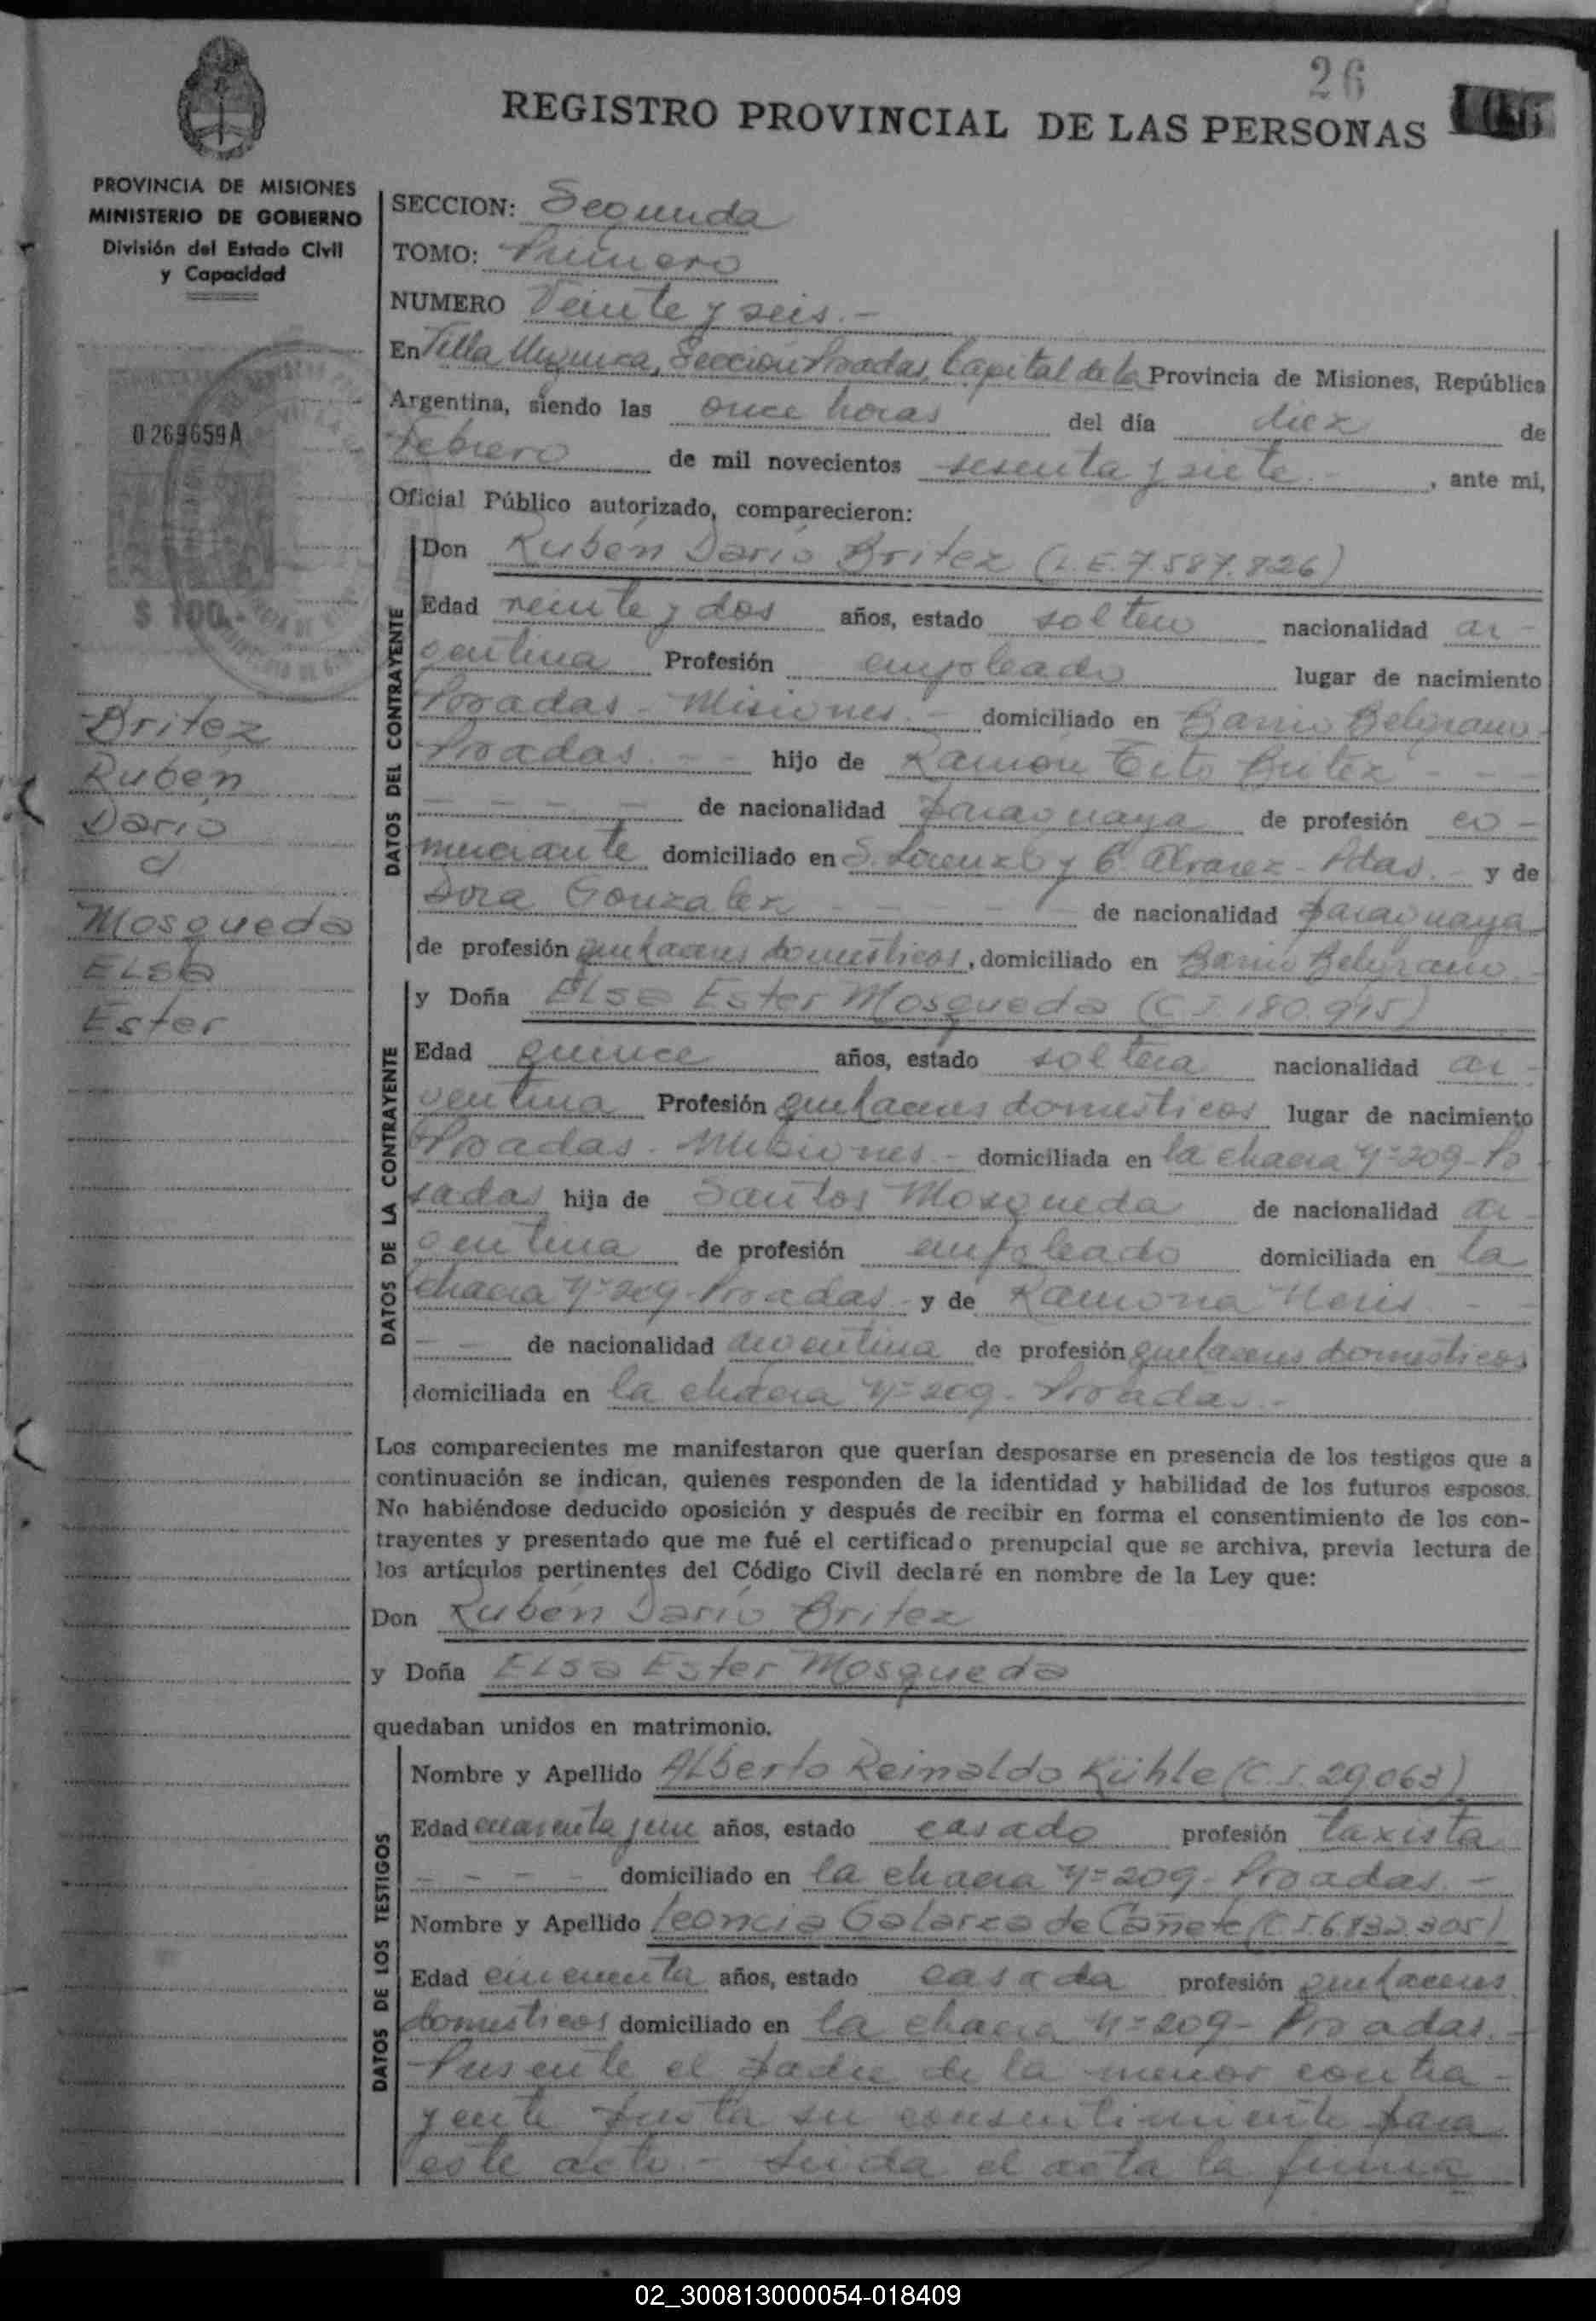 26
REGISTRO PROVINCIAL DE LAS PERSONAS
PROVINCIA DE MISIONES
MINISTERIO DE GOBIERNO
División del Estado Civil
y Capacidad
0269659A
$ 100.-
Britez
Rubén
Darío
d
Mosqueda
Elsa
Ester
SECCION: Segunda
TOMO: Primero
NUMERO Veinte y seis.-
En Villa Urquiza, Sección Posadas, Capital de la Provincia de Misiones, República
Argentina, siendo las once horas del día diez de
febrero de mil novecientos sesenta y siete , ante mi,
Oficial Público autorizado, comparecieron:
DATOS DEL CONTRAYENTE
Don Rubén Darío Britez (L.E. 7.587.826)
Edad veinte y dos años, estado soltero nacionalidad ar-
gentina Profesión empleado lugar de nacimiento
Posadas - Misiones.- domiciliado en Barrio Belgrano-
Posadas. - - hijo de Ramón Tito Britez - - -
- - - - - de nacionalidad paraguaya de profesión co-
merciante domiciliado en S. Lorenzo y C. Alvarez - Pdas.- y de
Dora Gonzalez - - - - - de nacionalidad paraguaya
de profesión quehaceres domésticos, domiciliado en Barrio Belgrano.-
DATOS DE LA CONTRAYENTE
y Doña Elsa Ester Mosqueda (C.I. 180.915)
Edad quince años, estado soltera nacionalidad ar-
gentina Profesión quehaceres domesticos lugar de nacimiento
Posadas. Misiones.- domiciliada en la chacra Nº 209 - Po-
sadas hija de Santos Mosqueda de nacionalidad ar-
gentina de profesión empleado domiciliada en la
chacra Nº 209 - Posadas - y de Ramona Neris - -
- - de nacionalidad argentina de profesión quehaceres domesticos
domiciliada en la chacra Nº 209 - Posadas.-
Los comparecientes me manifestaron que querían desposarse en presencia de los testigos que a
continuación se indican, quienes responden de la identidad y habilidad de los futuros esposos.
No habiéndose deducido oposición y después de recibir en forma el consentimiento de los con-
trayentes y presentado que me fué el certificado prenupcial que se archiva, previa lectura de
los artículos pertinentes del Código Civil declaré en nombre de la Ley que:
Don Rubén Darío Britez
y Doña Elsa Ester Mosqueda
quedaban unidos en matrimonio.
DATOS DE LOS TESTIGOS
Nombre y Apellido Alberto Reinaldo Kühle (C.I. 29.063)
Edad cuarenta y un años, estado casado profesión taxista
- - - - domiciliado en la chacra Nº 209 - Posadas.-
Nombre y Apellido Leoncia Galarza de Cañete (C.I. 6.832.305)
Edad cincuenta años, estado casada profesión quehaceres
domesticos domiciliado en la chacra Nº 209 - Posadas.-
Presente el padre de la menor contra-
yente presta su consentimiento para
este acto.- Leída el acta la firma
02_300813000054-018409